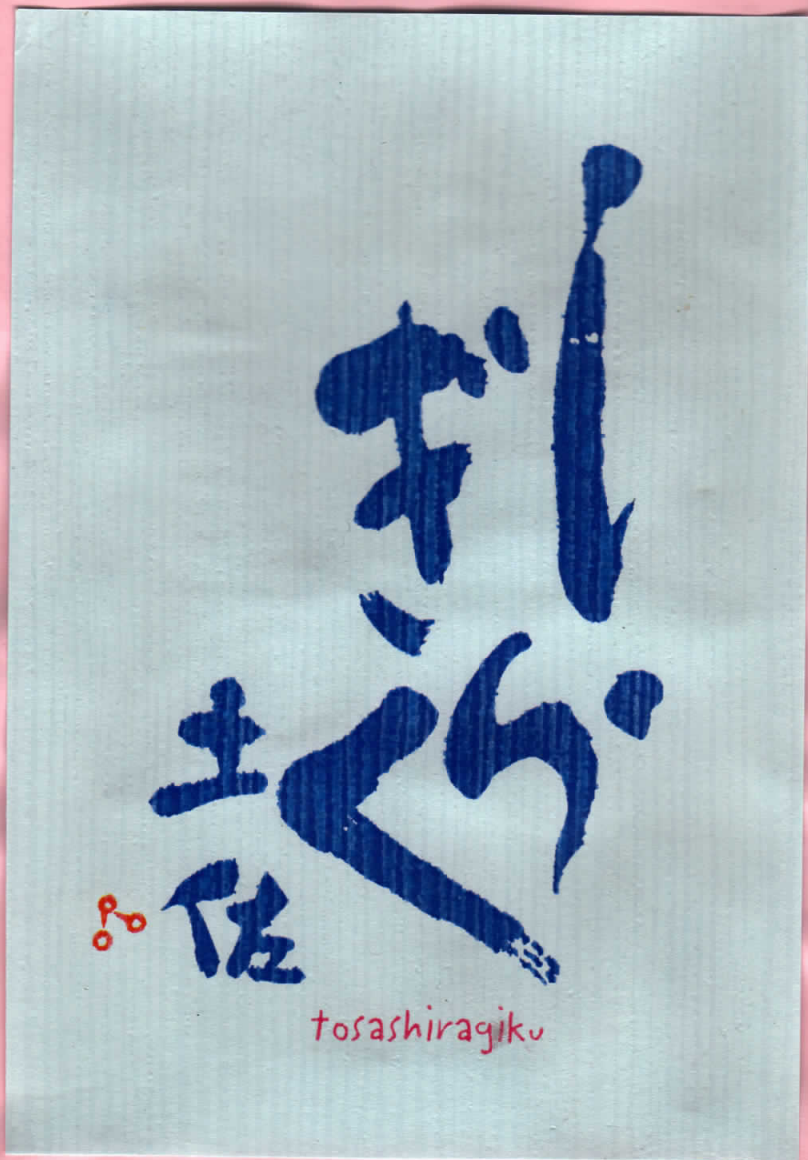 しら
ぎく
土佐
tosashiragiku